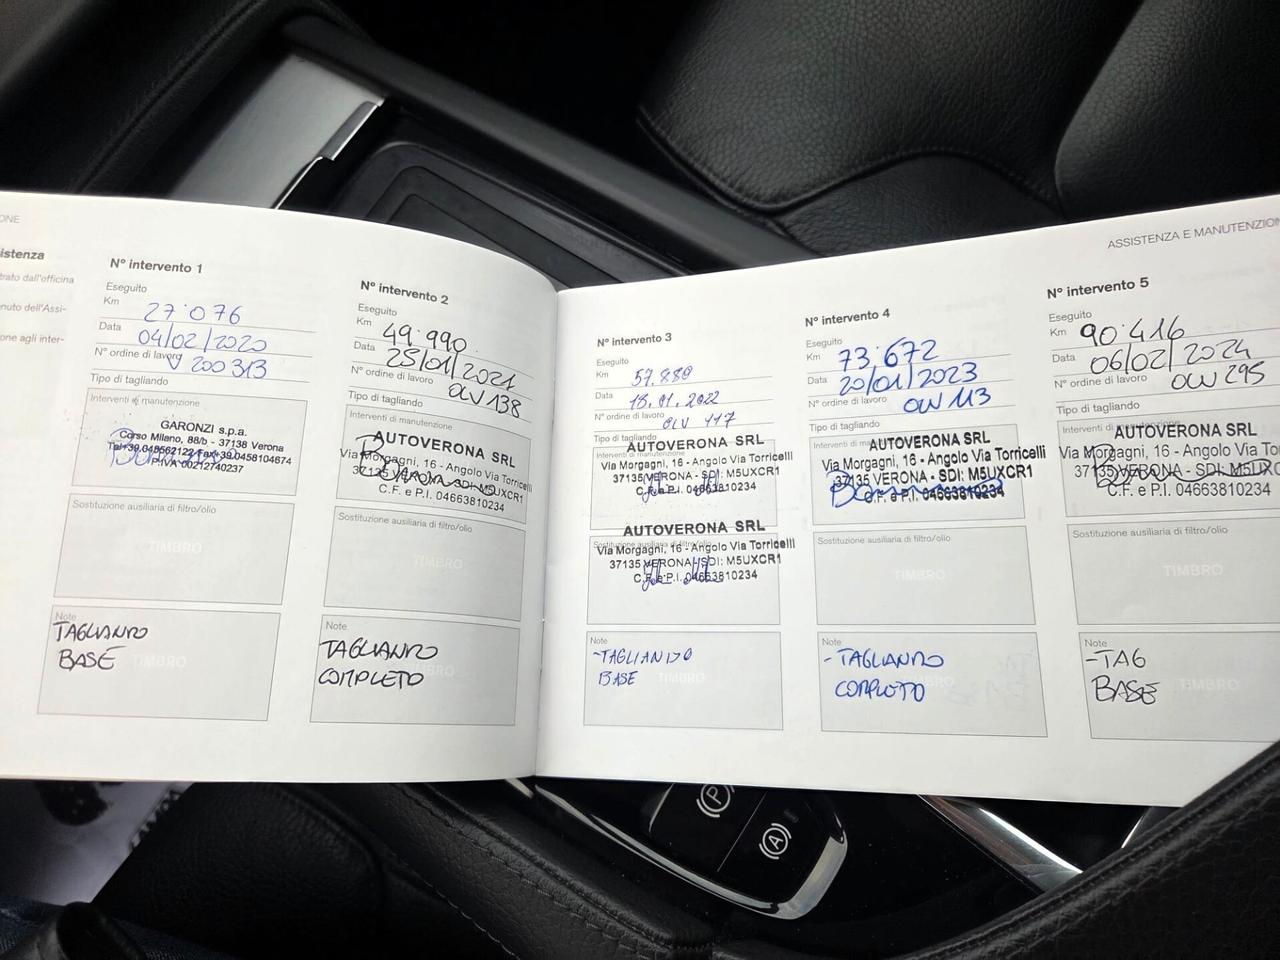 ONE
istenza
trato dall'officina
nuto dell'Assi-
one agli inter-
N° intervento 1
Eseguito
Km 27·076
Data 04/02/2020
N° ordine di lavoro 200313
Tipo di tagliando
Interventi di manutenzione
GARONZI s.p.a.
Corso Milano, 88/b - 37138 Verona
Tel+39.045562122 Fax+39.0458104674
P.IVA 00212740237
Sostituzione ausiliaria di filtro/olio
TIMBRO
Note
TAGLIANDO
BASE
TIMBRO
N° intervento 2
Eseguito
Km 49·990
Data 25/01/2021
N° ordine di lavoro OLV 138
Tipo di tagliando
Interventi di manutenzione
AUTOVERONA SRL
Via Morgagni, 16 - Angolo Via Torricelli
37135 VERONA - SDI: M5UXCR1
C.F. e P.I. 04663810234
Sostituzione ausiliaria di filtro/olio
TIMBRO
Note
TAGLIANDO
COMPLETO
TIMBRO
ASSISTENZA E MANUTENZION
N° intervento 3
Eseguito
Km 57.880
Data 18.01.2022
N° ordine di lavoro OLV 117
Tipo di tagliando
Interventi di manutenzione
AUTOVERONA SRL
Via Morgagni, 16 - Angolo Via Torricelli
37135 VERONA - SDI: M5UXCR1
C.F. e P.I. 04663810234
Sostituzione ausiliaria di filtro/olio
AUTOVERONA SRL
Via Morgagni, 16 - Angolo Via Torricelli
37135 VERONA - SDI: M5UXCR1
C.F. e P.I. 04663810234
Note
-TAGLIANDO
BASE
TIMBRO
N° intervento 4
Eseguito
Km 73·672
Data 20/01/2023
N° ordine di lavoro OLV 113
Tipo di tagliando
Interventi di manutenzione
AUTOVERONA SRL
Via Morgagni, 16 - Angolo Via Torricelli
37135 VERONA - SDI: M5UXCR1
C.F. e P.I. 04663810234
Sostituzione ausiliaria di filtro/olio
TIMBRO
Note
- TAGLIANDO
COMPLETO
TIMBRO
N° intervento 5
Eseguito
Km 90·416
Data 06/02/2024
N° ordine di lavoro OLV 295
Tipo di tagliando
Interventi di manutenzione
AUTOVERONA SRL
Via Morgagni, 16 - Angolo Via Torricelli
37135 VERONA - SDI: M5UXC
C.F. e P.I. 04663810234
Sostituzione ausiliaria di filtro/olio
TIMBRO
Note
-TAG
BASE
TIMBRO
P
A